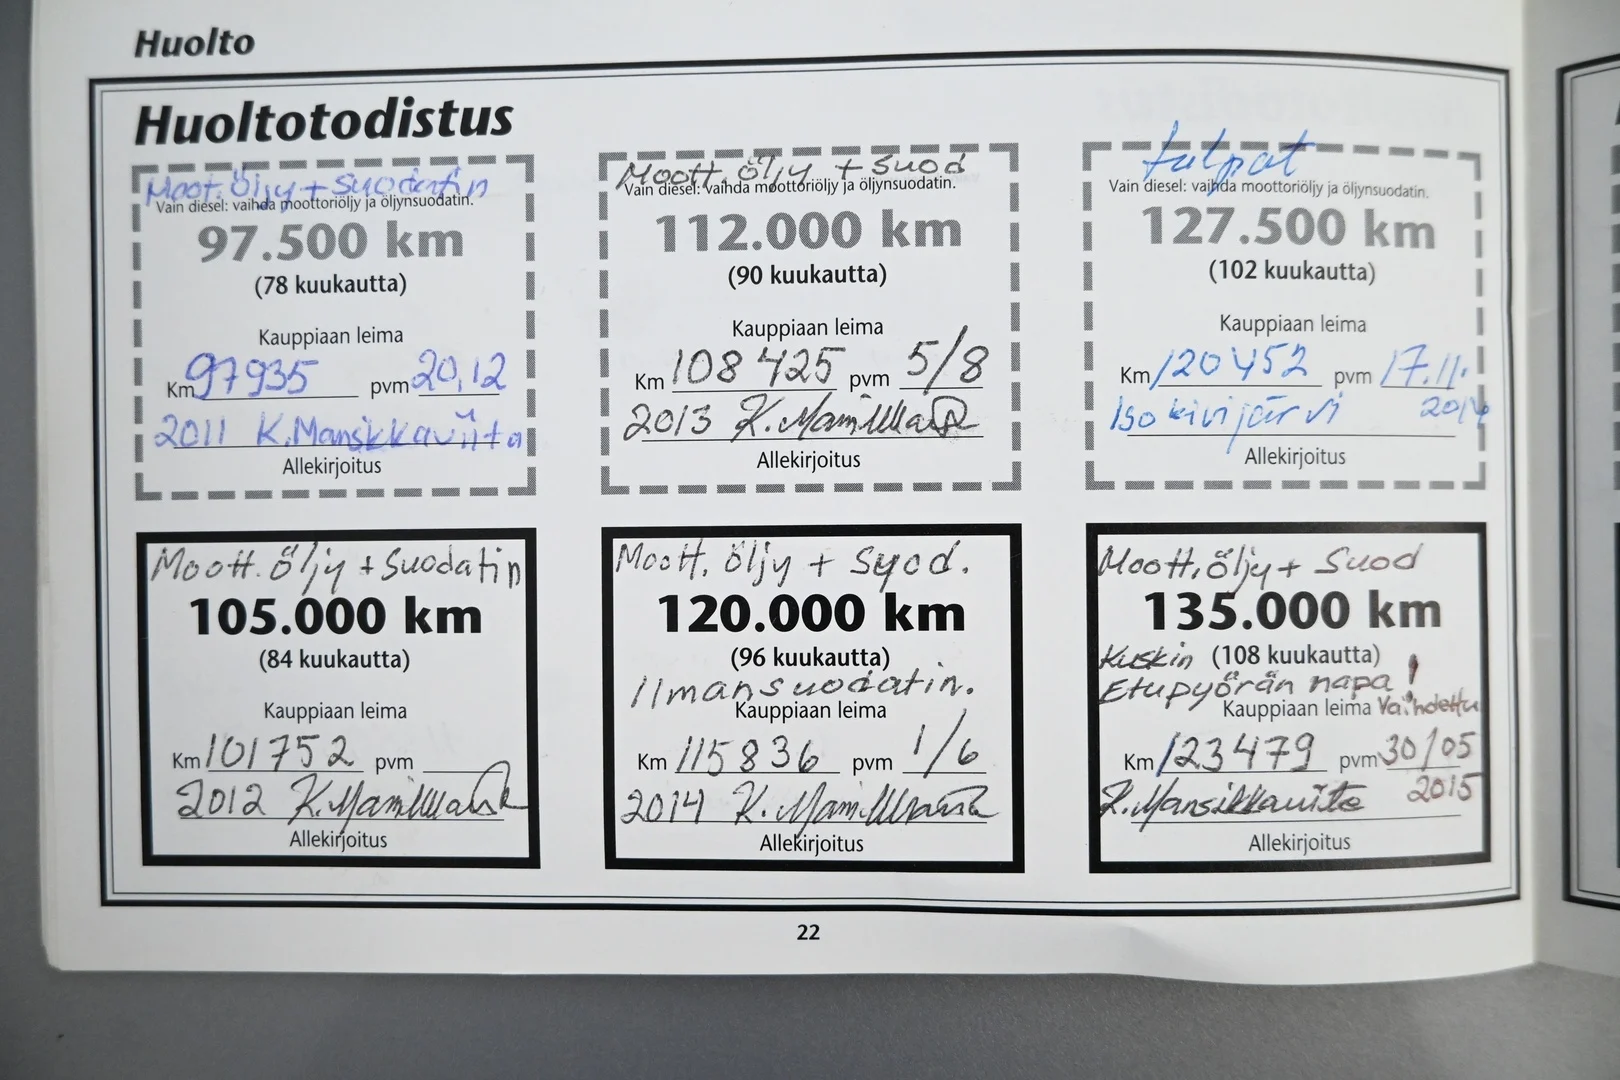 Huolto
Huoltotodistus
Moot. Öljy + Suodatin
Vain diesel: vaihda moottoriöljy ja öljynsuodatin.
97.500 km
(78 kuukautta)
Kauppiaan leima
Km 97935 pvm 20,12
2011 K.Mansikkaviita
Allekirjoitus
Moott. öljy + Suod
Vain diesel: vaihda moottoriöljy ja öljynsuodatin.
112.000 km
(90 kuukautta)
Kauppiaan leima
Km 108 425 pvm 5/8
2013 K.
Allekirjoitus
tulpat
Vain diesel: vaihda moottoriöljy ja öljynsuodatin.
127.500 km
(102 kuukautta)
Kauppiaan leima
Km 120452 pvm 17.11.
Iso kivijärvi 2014
Allekirjoitus
Moott. öljy + Suodatin
105.000 km
(84 kuukautta)
Kauppiaan leima
Km 101752 pvm
2012 K.
Allekirjoitus
Moott. öljy + Suod.
120.000 km
(96 kuukautta)
Ilmansuodatin.
Kauppiaan leima
Km 115836 pvm 1/6
2014 K.
Allekirjoitus
Moott. öljy + Suod
135.000 km
Kuskin (108 kuukautta)
Etupyörän napa !
Kauppiaan leima Vaihdettu
Km 123479 pvm 30/05
K.Mansikkaviita 2015
Allekirjoitus
22